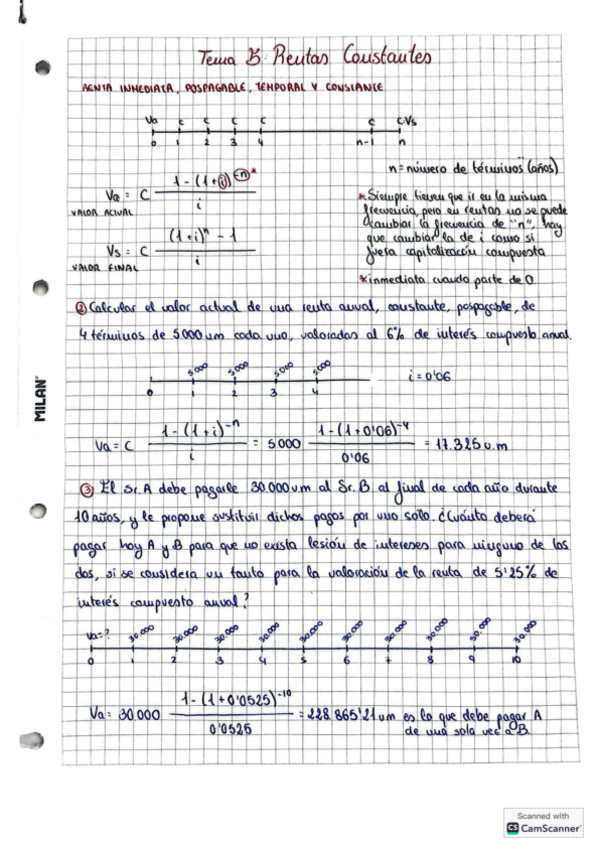 Tema 5: Rentas Constantes
RENTA INMEDIATA, POSPAGABLE, TEMPORAL Y CONSTANTE
Va C C C C C C·Vs
0 1 2 3 4 n-1 n
n = número de términos (años)
Va = C (1-(1+i)^-n)/i *
VALOR ACTUAL
Vs = C ((1+i)^n - 1)/i
VALOR FINAL
* Siempre tienen que ir en la misma
frecuencia, pero en rentas no se puede
cambiar la frecuencia de "n", hay
que cambiar la de i como si
fuera capitalización compuesta
* inmediata cuando parte de 0.
② Calcular el valor actual de una renta anual, constante, pospagable, de
4 términos de 5000 um cada uno, valoradas al 6% de interés compuesto anual.
5000 5000 5000 5000
0 1 2 3 4
i = 0'06
Va = C (1-(1+i)^-n)/i = 5000 (1-(1+0'06)^-4)/0'06 = 17.325 u.m
③ El Sr. A debe pagarle 30.000 um al Sr. B al final de cada año durante
10 años, y le propone sustituir dichos pagos por uno solo. ¿Cuánto deberá
pagar hoy A y B para que no exista lesión de intereses para ninguno de los
dos, si se considera un tanto para la valoración de la reuta de 5'25% de
interés compuesto anual?
Va=? 30.000 30.000 30.000 30.000 30.000 30.000 30.000 30.000 30.000 30.000
0 1 2 3 4 5 6 7 8 9 10
Va = 30.000 (1-(1+0'0525)^-10)/0'0525 = 228.865'21 um es lo que debe pagar A
de una sola vez a B.
MILAN
Scanned with
CS CamScanner